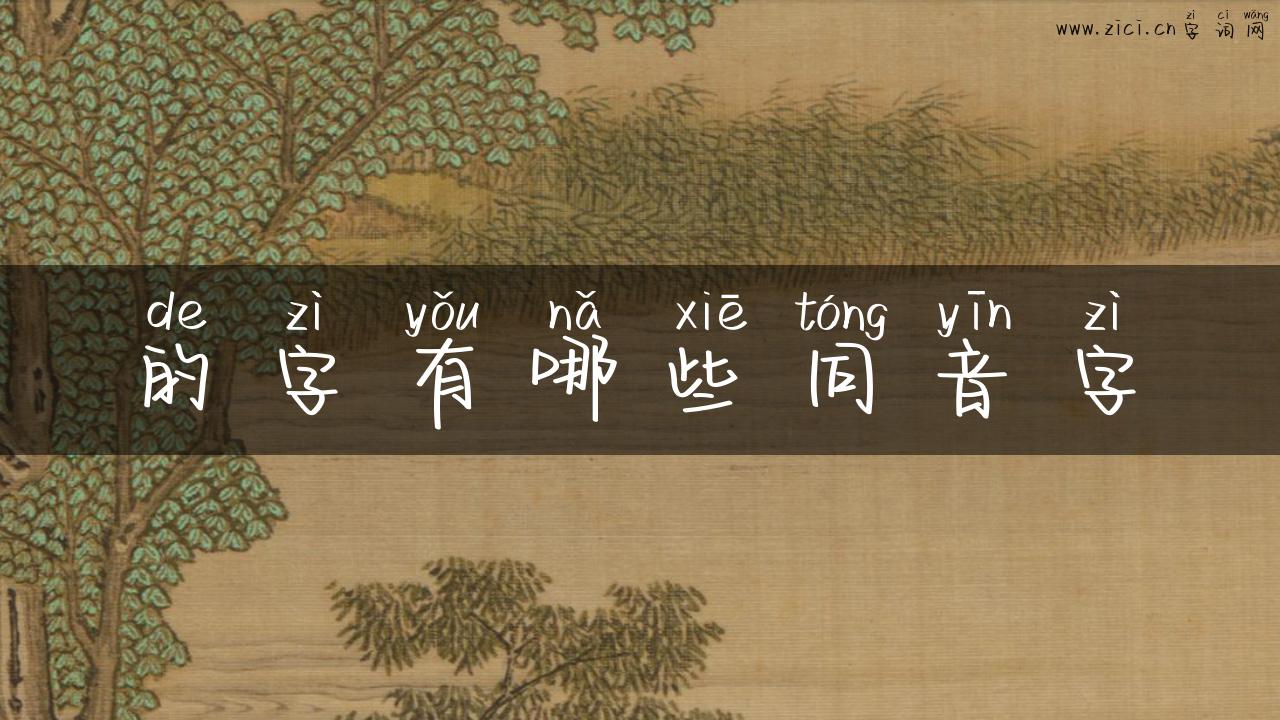 zì cí wǎng
www.zici.cn字词网
de zì yǒu nǎ xiē tóng yīn zì
的字有哪些同音字